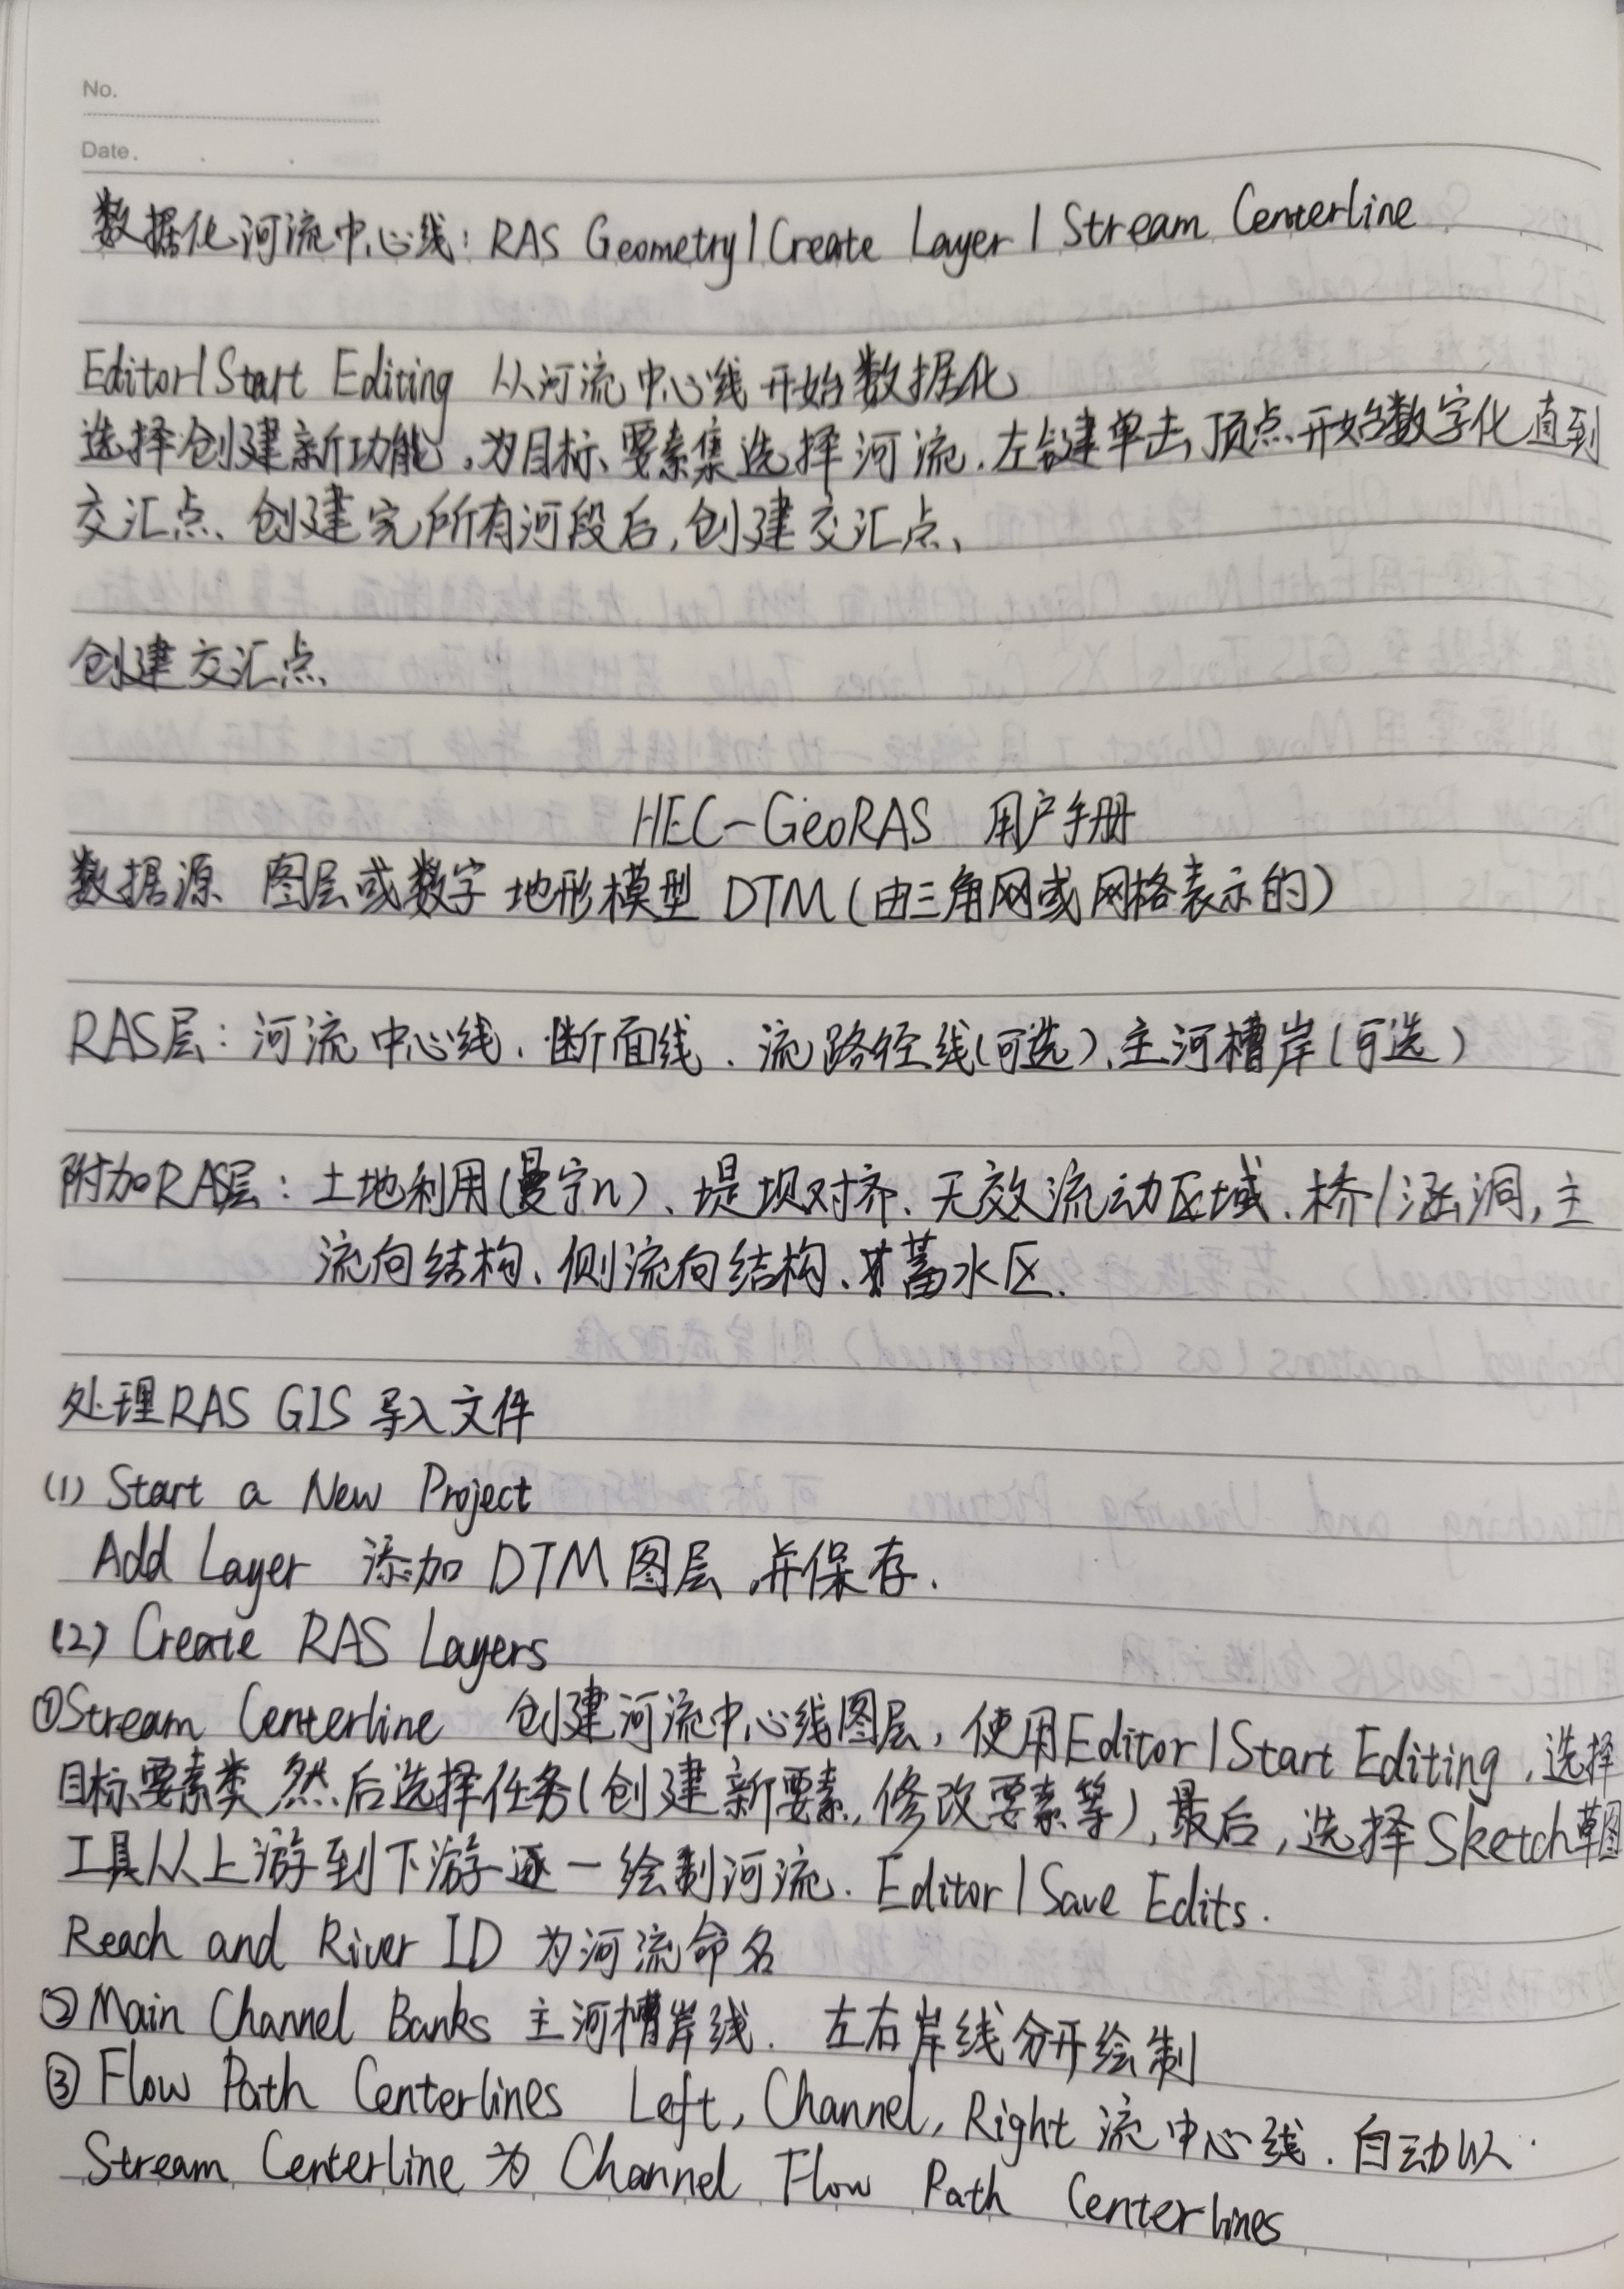 No.
Date.
数据化河流中心线：RAS Geometry | Create Layer | Stream Centerline
Editor | Start Editing 从河流中心线开始数据化
选择创建新功能，为目标要素集选择河流.左键单击顶点开始数字化直到
交汇点、创建完所有河段后，创建交汇点、
创建交汇点
HEC-GeoRAS 用户手册
数据源 图层或数字地形模型 DTM（由三角网或网格表示的）
RAS层：河流中心线、断面线、流路径线（可选）、主河槽岸（可选）
附加RAS层：土地利用（曼宁n）、堤坝对齐、无效流动区域、桥/涵洞，主
流向结构、侧流向结构、蓄水区.
处理RAS GIS 导入文件
(1) Start a New Project
Add Layer 添加 DTM 图层，并保存.
(2) Create RAS Layers
①Stream Centerline 创建河流中心线图层，使用Editor | Start Editing，选择
目标要素类，然后选择任务（创建新要素，修改要素等），最后，选择Sketch草图
工具从上游到下游逐一绘制河流. Editor | Save Edits.
Reach and River ID 为河流命名
②Main Channel Banks 主河槽岸线. 左右岸线分开绘制
③ Flow Path Centerlines Left, Channel, Right 流中心线. 自动以
Stream Centerline 为 Channel Flow Path Centerlines